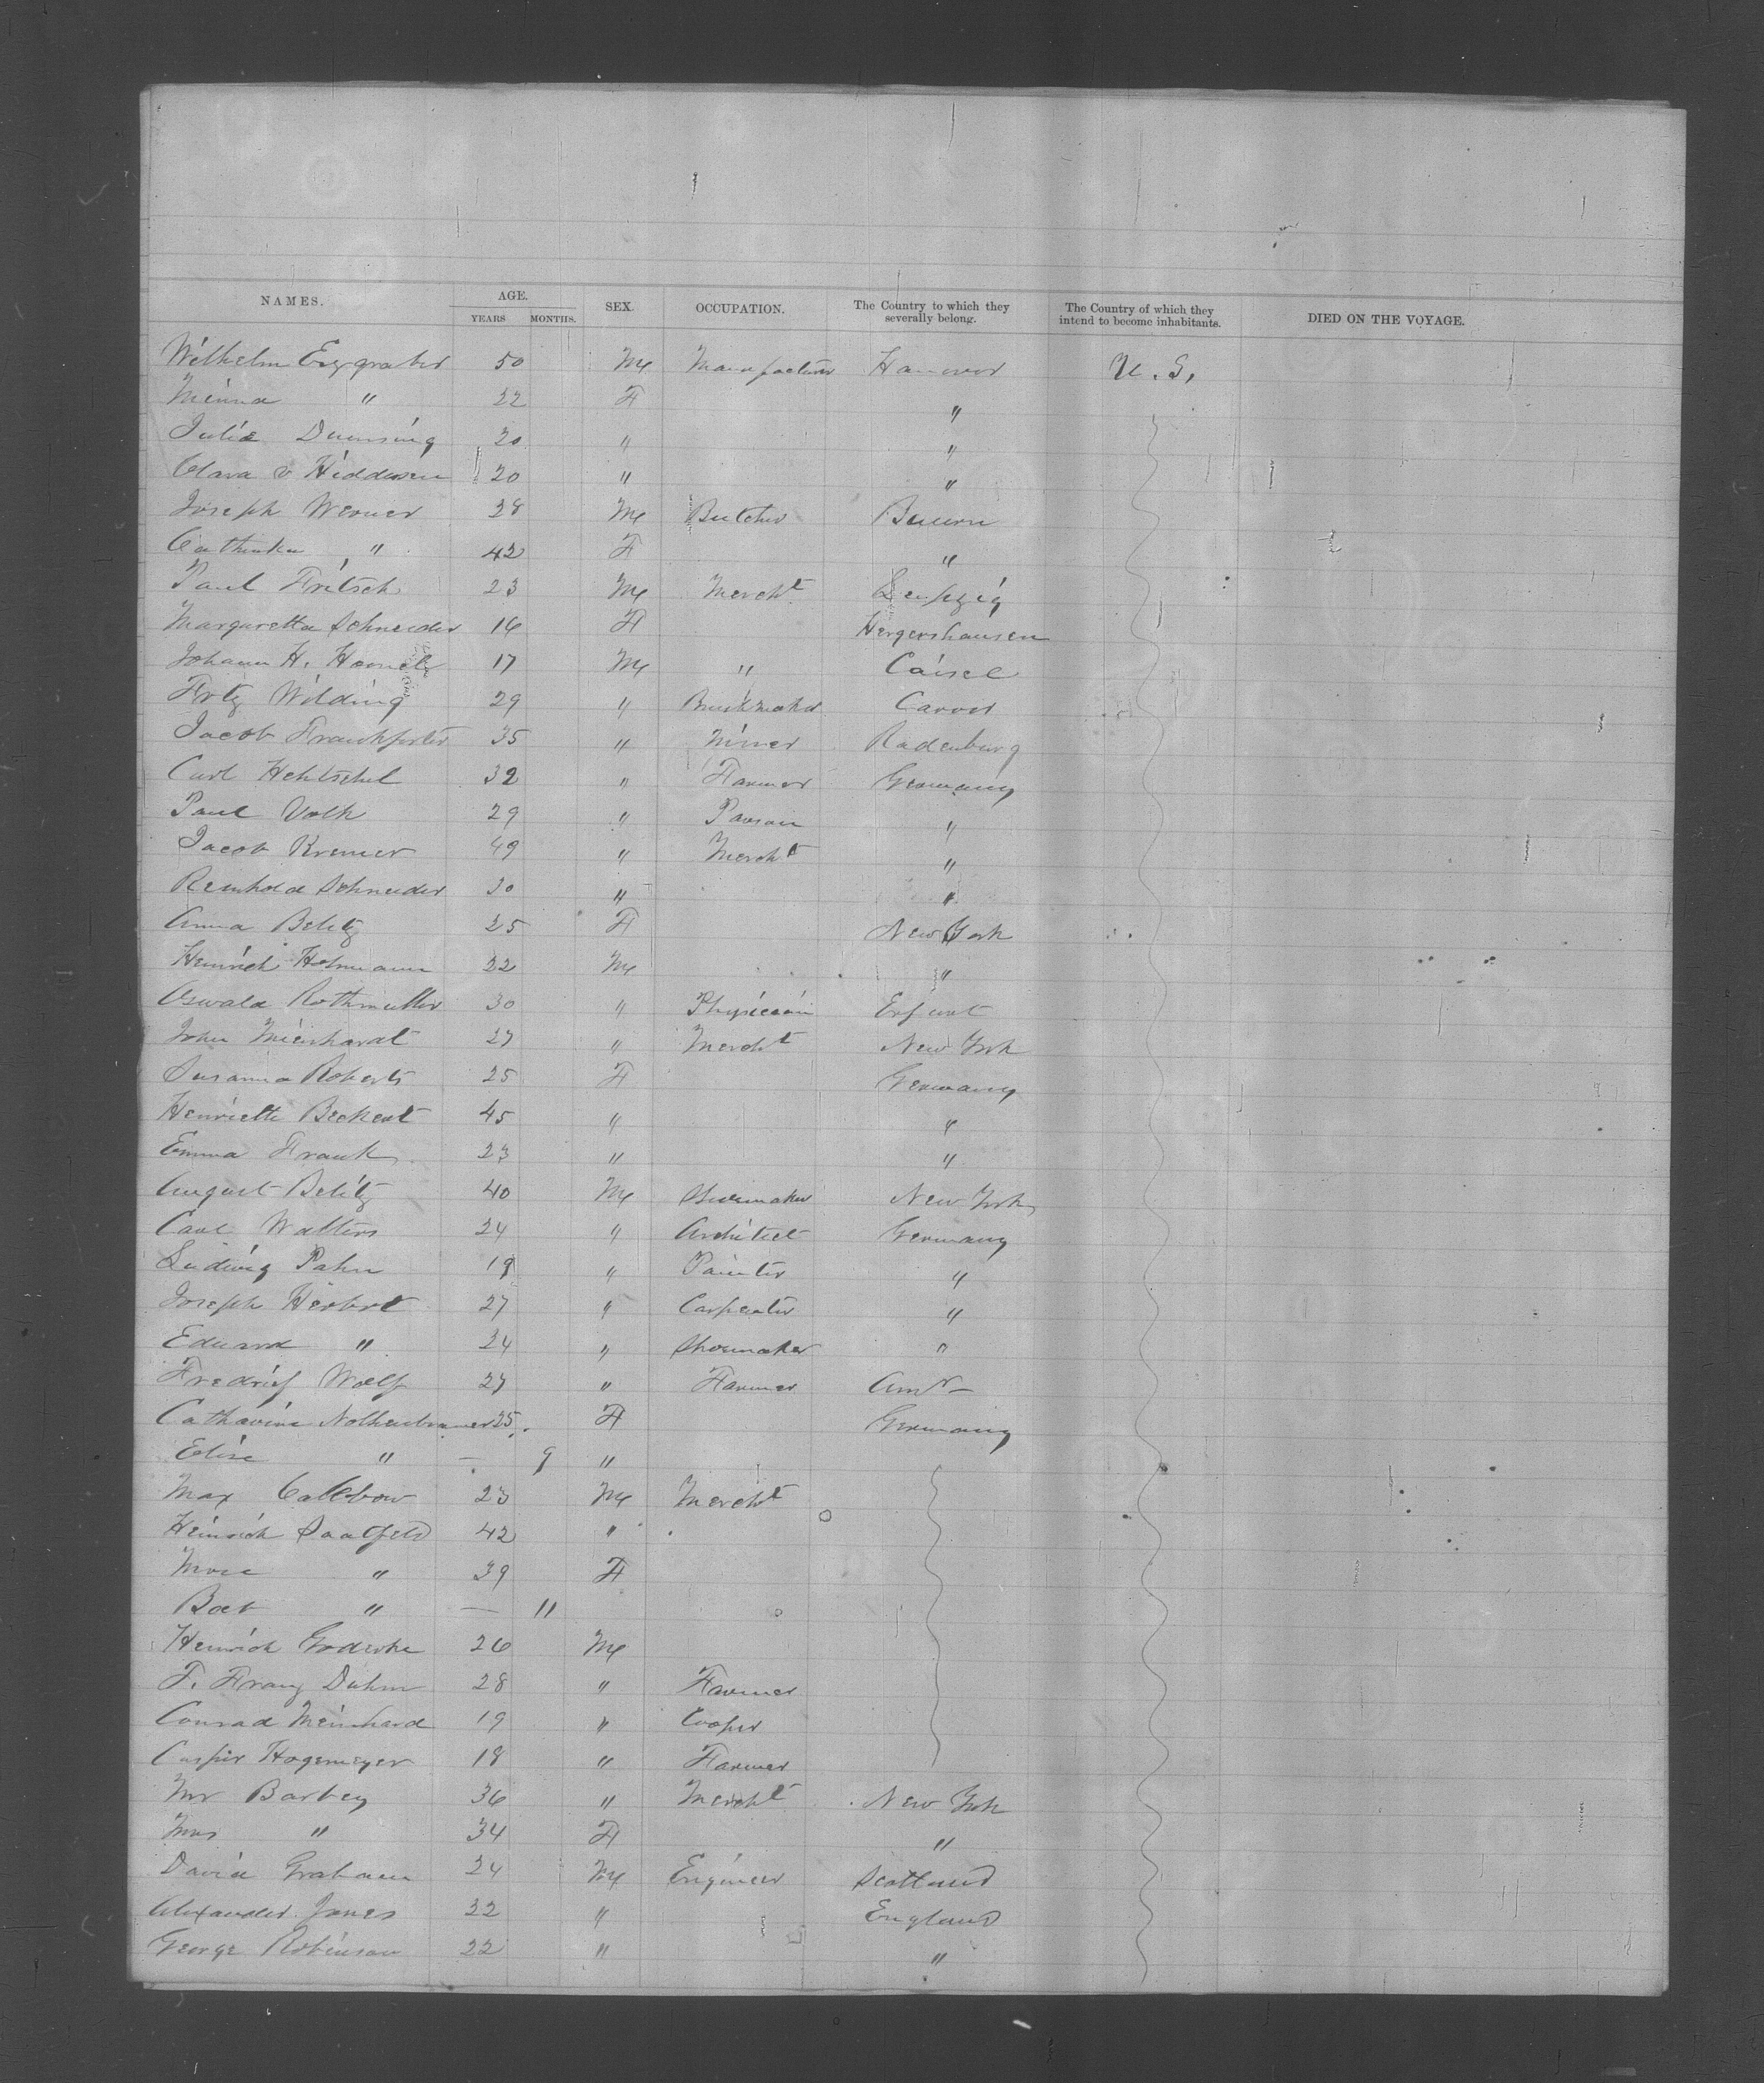 NAMES. AGE. SEX. OCCUPATION. The Country to which they severally belong. The Country of which they intend to become inhabitants. DIED ON THE VOYAGE.
YEARS MONTHS.
Wilhelm 50 M Manufacturer Hanover U. S.
Minna " 22 F "
Julie Duensing 20 " "
Clara v Hiddesen 20 " "
Joseph Werner 38 M Butcher
Cathinka " 42 F "
Paul Fritsch 23 M Mercht Leipzig
Margaretta Schneider 16 F Hergershausen
Johann H. 17 M " Cassel
Wilding 29 "
Jacob Frankfurter 35 " Miner Radenburg
Carl Hehtschel 32 " Farmer Germany
Paul Volk 29 " "
Jacob Kremer 49 " Mercht "
Reinhold Schneider 30 " "
Anna Belitz 25 F New York
Heinrich 22 M "
Oswald Rothmuller 30 " Physician Erfurt
John Mienhardt 27 " Mercht New York
Susanna Roberts 25 F Germany
Henriette Beckert 45 " "
Emma Frank 23 " "
August Belitz 40 M Shoemaker New York
Carl Walters 24 " Architect Germany
Ludwig Pahn 19 " Painter "
Joseph Herbert 27 " Carpenter "
Eduard " 24 " Shoemaker "
Fredrich Wolf 27 " Farmer
Catharine 25 F Germany
Elise " — 9 "
Max 23 M Mercht
Heinrich Saalfeld 42 "
" 39 F
" — 11
Heinrich 26 M
F. Franz Duhm 28 " Farmer
Conrad Meinhard 19 " Cooper
Casper Hagemeyer 18 " Farmer
Mr Barbey 36 " Mercht New York
Mrs " 34 F "
David Graham 24 M Engineer Scotland
Alexander Jones 22 " England
George Robinson 22 " "